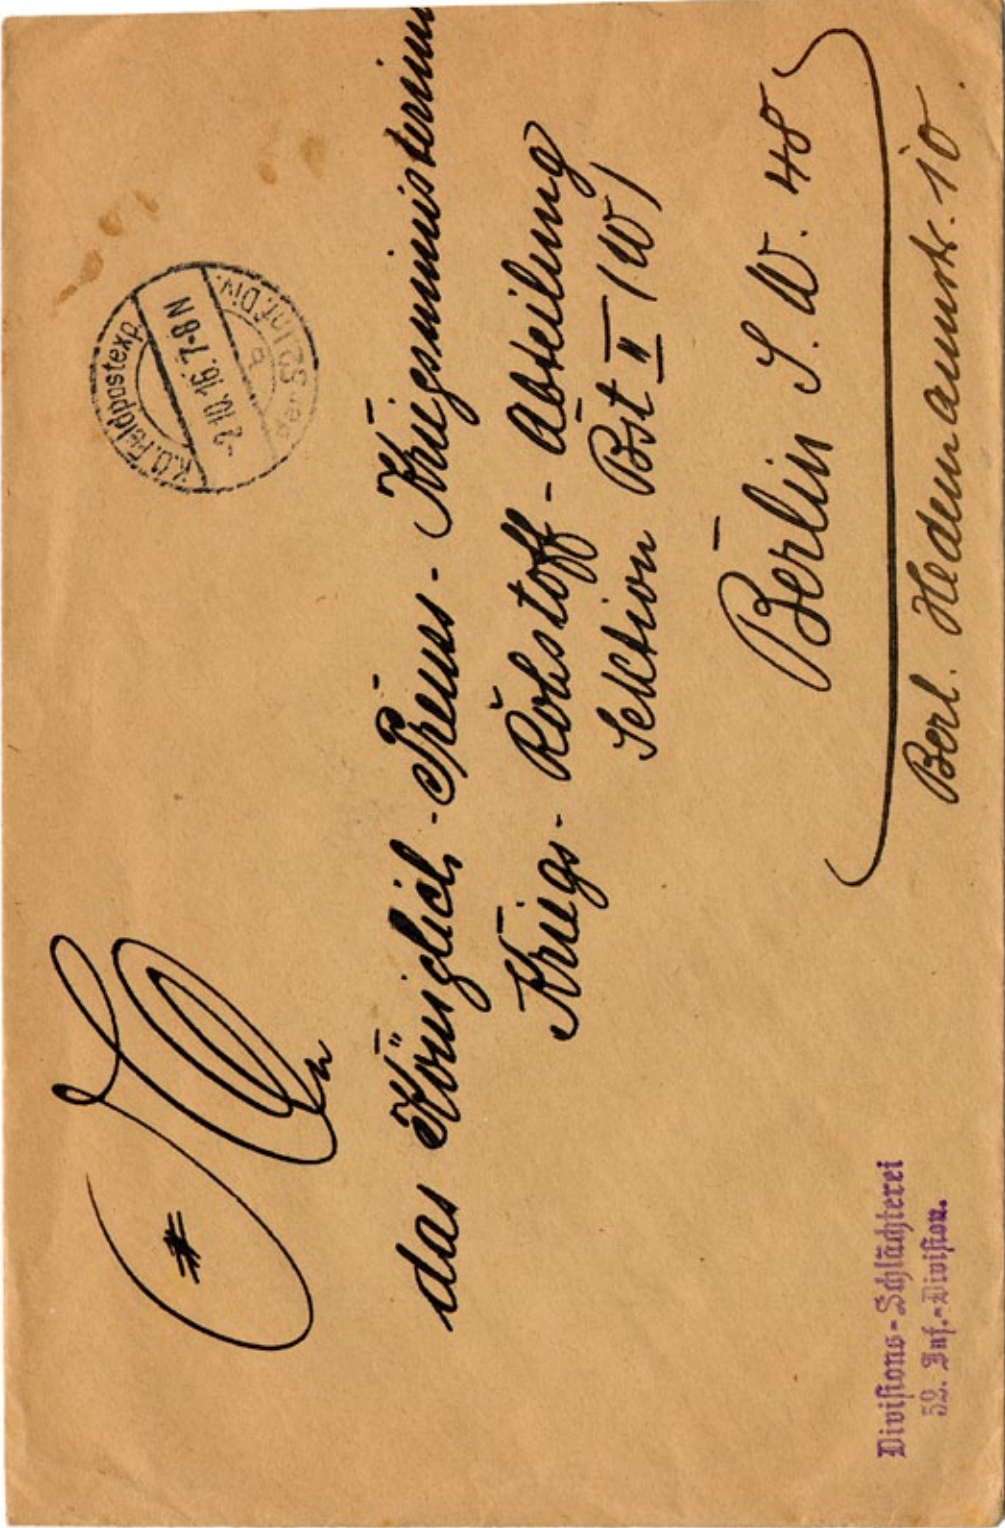 An
das Königlich-Preuss-Kriegsministerium
Kriegs-Rohstoff-Abteilung
Sektion Bst II (W)
Berlin S.W. 48
Berl. Hedemannstr. 10.
K.D. Feldpostexp.
-2.10.16. 7-8 N
b
52. Inf. Div.
Divisions-Schlächterei
52. Inf.-Division.